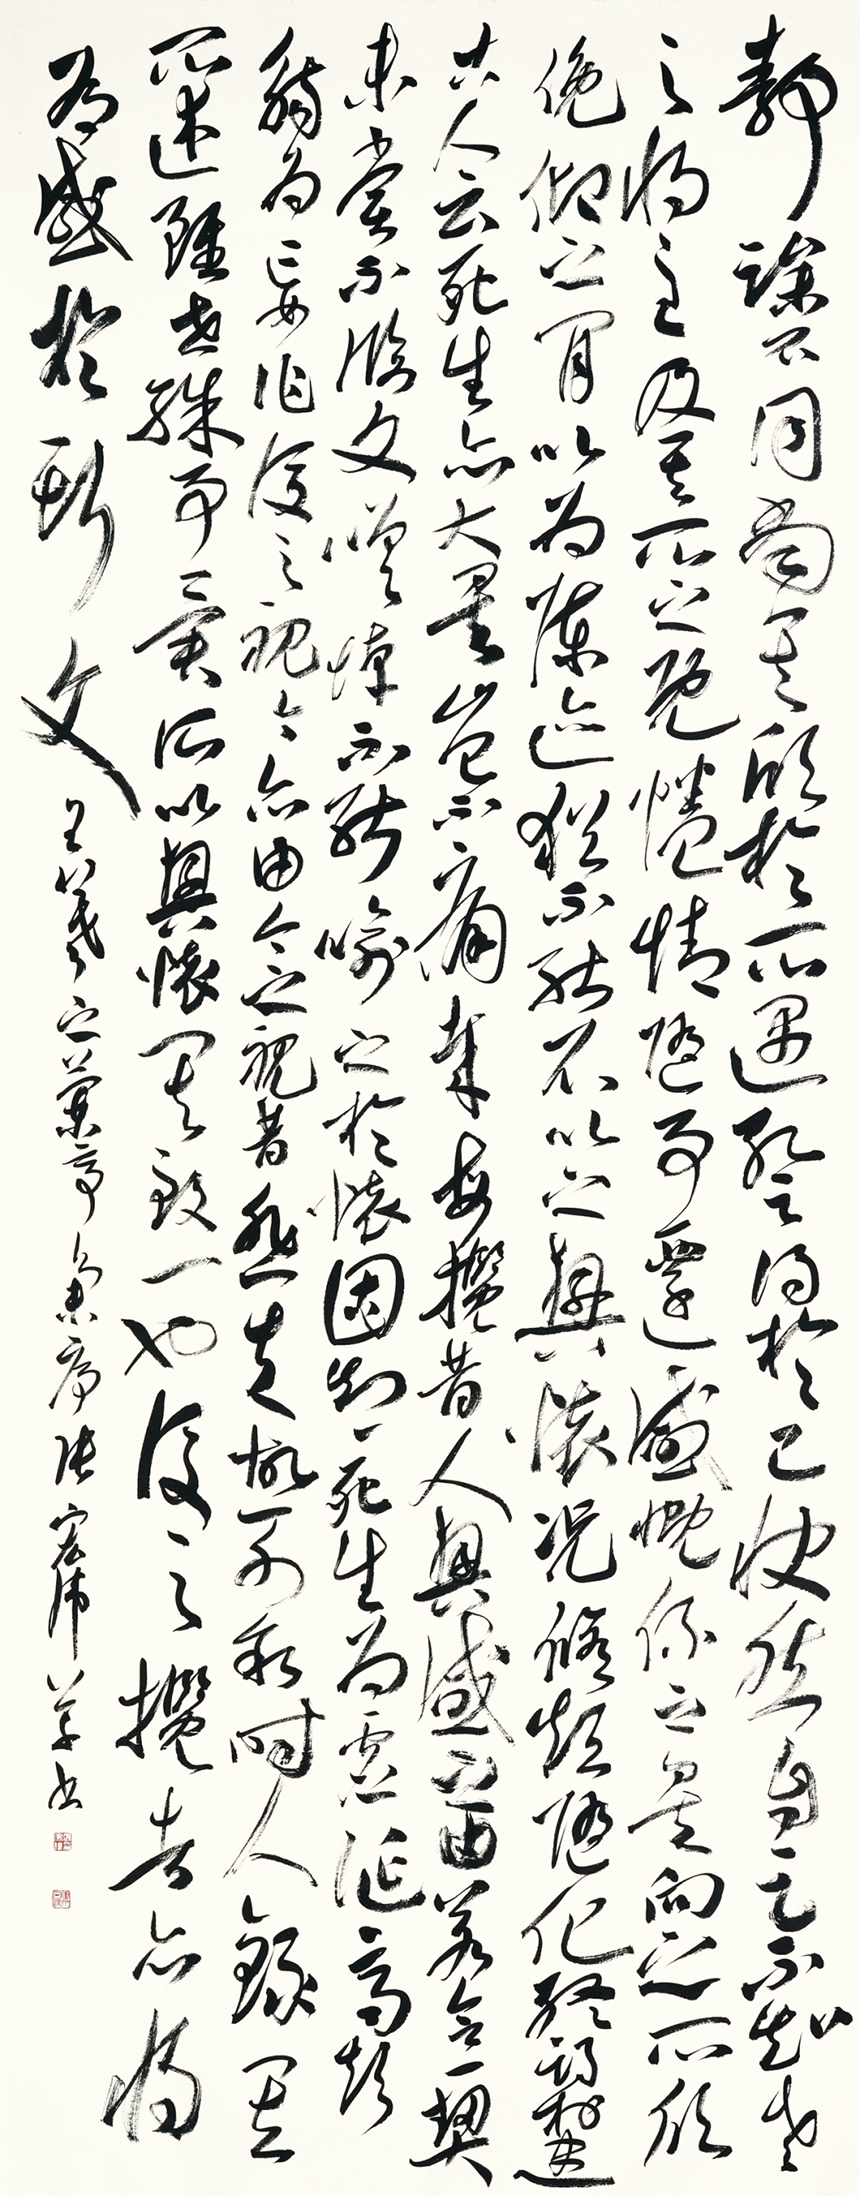 静躁不同當其欣於所遇暫得於己快然自足不知老
之將至及其所之既惓情隨事遷感慨係之矣向之所欣
俛仰之間以為陳迹猶不能不以之興懷況脩短隨化終期於盡
古人云死生亦大矣豈不痛哉每攬昔人興感之由若合一契
未嘗不臨文嗟悼不能喻之於懷固知一死生為虛誕齊彭
殤為妄作後之視今亦由今之視昔悲夫故列敘時人錄其
所述雖世殊事異所以興懷其致一也後之攬者亦將
有感於斯文 王羲之蘭亭集序 張宏偉草書